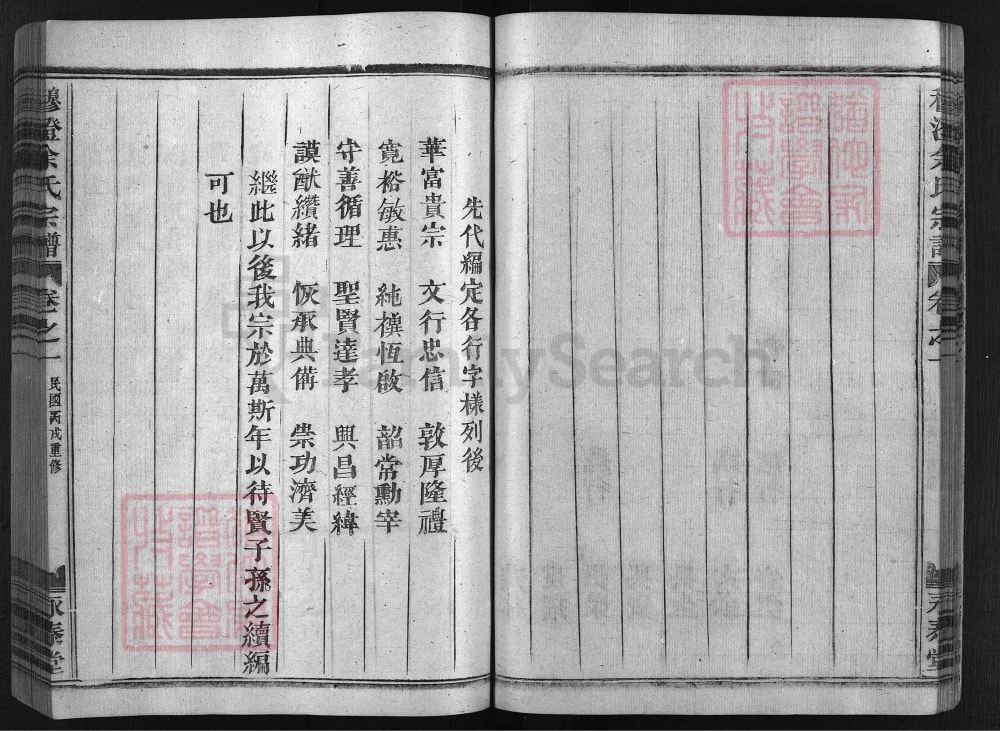 先代編定各行字樣列後
華富貴宗 文行忠信 敦厚隆禮
寬裕敏惠 純積恆啟 韶常勳宰
守善循理 聖賢達孝 興昌經緯
謨猷纘緒 恢承典備 崇功濟美
繼此以後我宗於萬斯年以待賢子孫之續編
可也
穆澄余氏宗譜 卷之一 民國丙戌重修 永泰堂
余氏宗譜 卷之一 永泰堂
譜學會
收藏
譜學會
收藏
FamilySearch